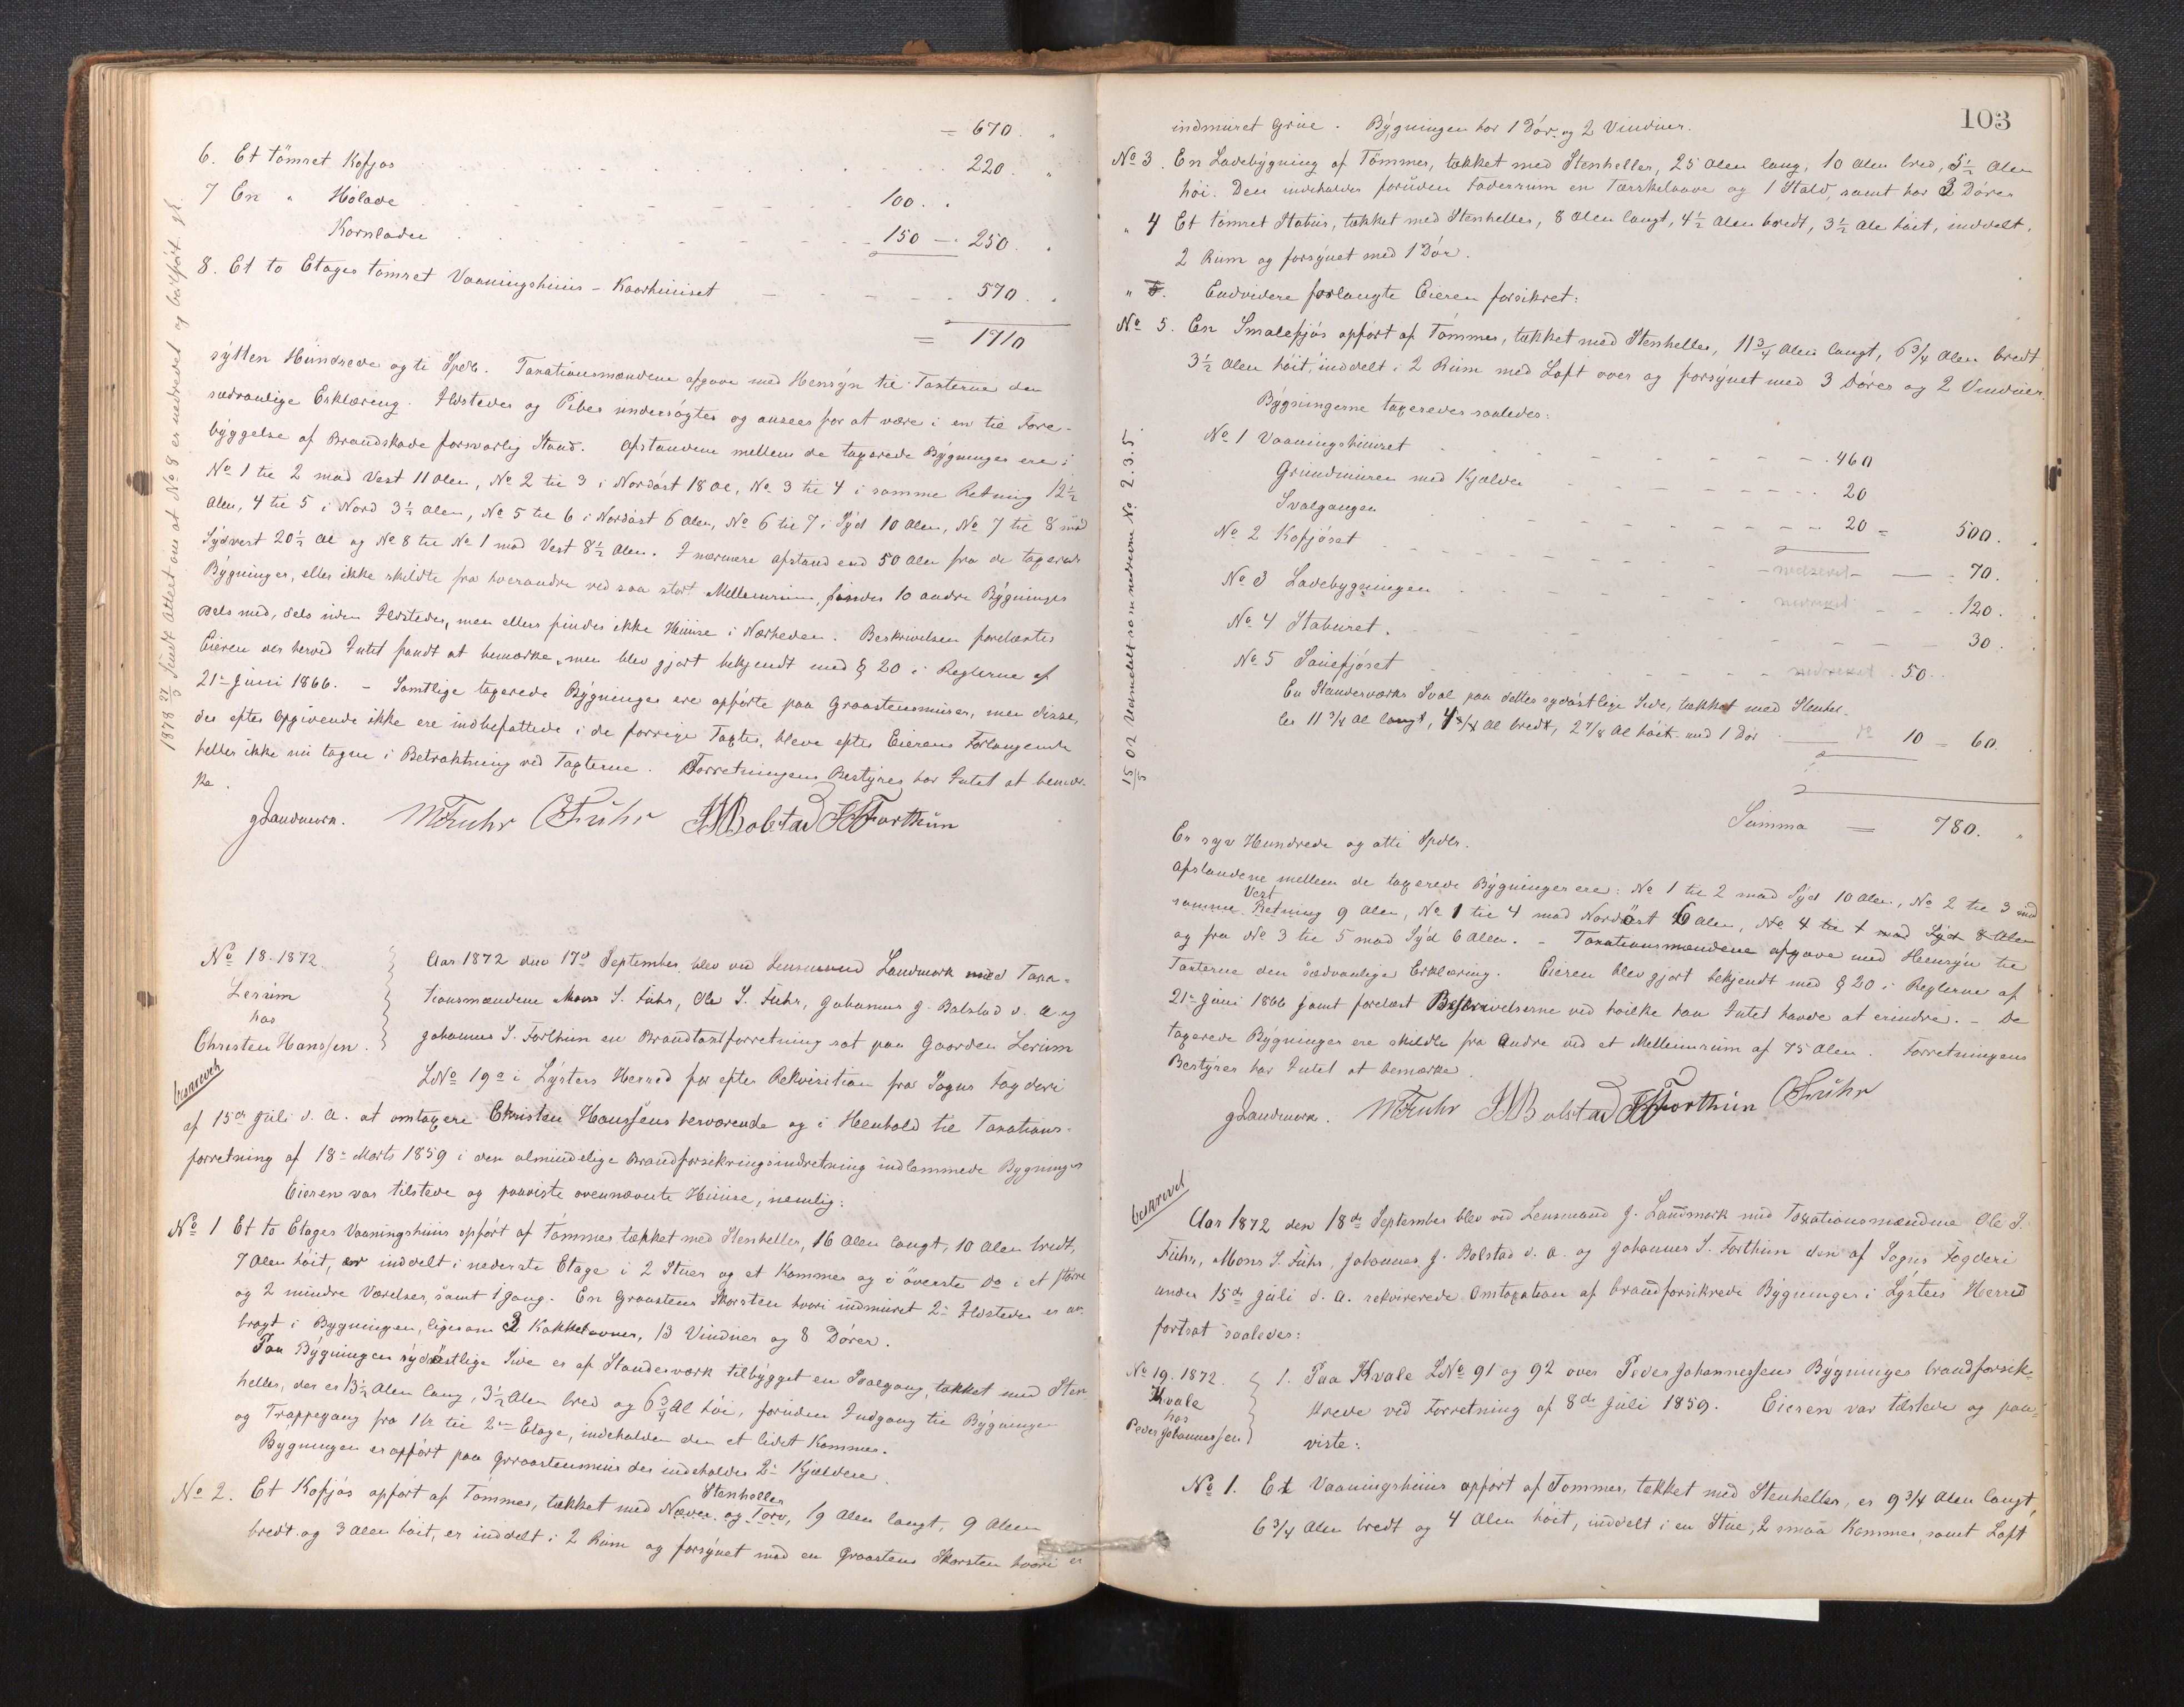 = 670. "
6. Et tömret Kofjøs . . . . 220. "
7 En " Hölade . . . . 100. "
Kornladen . . . . 150 — 250. "
8. Et to Etages tömret Vaaningshuus - Kaarhuuset - - - 570. "
= 1710
sytten Hundrede og ti Spdlr. Taxationsmændene afgave med Hensyn til Taxterne den
sædvanlige Erklæring. Ildsteder og Piber undersögtes og ansees for at være i en til Fore-
byggelse af Brandskade forsvarlig Stand. Afstandene mellem de taxerede Bygninger ere:
No 1 til 2 mod Vest 11 Alen, No 2 til 3 i Nordöst 18 Al, No 3 til 4 i samme Retning 12½
Alen, 4 til 5 i Nord 3½ Alen, No 5 til 6 i Nordöst 6 Alen, No 6 til 7 i Syd 10 Alen, No 7 til 8 mod
Sydvest 20½ Al og No 8 til No 1 mod Vest 8½ Alen. I nærmere Afstand end 50 Alen fra de taxerede
Bygninger, eller ikke skildte fra hverandre ved saa stort Mellemrum, findes 10 andre Bygninger
dels med, dels uden Ildsteder, men ellers findes ikke Huuse i Nærheden. Beskrivelsen forelæstes
Eieren der herved Intet fandt at bemærke, men blev gjort bekjendt med § 20 i Reglerne af
21de Juni 1866. - Samtlige taxerede Bygninger ere opförte paa Graastensmurer, men disse,
der efter Opgivende ikke ere indbefattede i de forrige Taxter, bleve efter Eierens Forlangende
heller ikke nu tagne i Betraktning ved Taxterne. Forretningens Bestyrer har Intet at bemær-
ke.
gLandmark. MFuhr OFuhr JJBolstad JSForthun
1878 27/5 fundt Attest om at No 8 er nedrevet og bortfört. gL.
No 18. 1872.
Lerum
hos
Christen Hanssen.
beskrevet
Aar 1872 den 17de September blev ved Lensmand Landmark med Taxa-
tionsmændene Mons S. Fuhr, Ole S. Fuhr, Johannes J. Bolstad d. A. og
Johannes S. Forthun en Brandtaxtforretning sat paa Gaarden Lerum
LNo 19a i Lysters Herred for efter Rekvisition fra Sogns Fogderi
af 15de Juli d. A. at omtaxere Christen Hanssens herværende og i Henhold til Taxations-
forretning af 18de Marts 1859 i den almindelige Brandforsikringsindretning indlemmede Bygninger
Eieren var tilstede og paaviste ovennævnte Huuse, nemlig:
No 1 Et to Etages Vaaningshuus opfört af Tömmer, tækket med Stenheller, 16 Alen langt, 10 Alen bredt,
7 Alen höit, er inddelt i nederste Etage i 2 Stuer og et Kammer og i överste Do i et större
og 2 mindre Værelser, samt 1 gang. En Graastens Skorsten hvori indmuret 2de Ildsteder er an-
bragt i Bygningen, ligesom 2 Kakkelovner, 13 Vinduer og 8 Dörer.
Paa Bygningen sydöstlige Side er af Standerværk tilbygget en Svalgang, tækket med Sten
heller, der er 13½ Alen lang, 3½ Alen bred og 6¾ Al höi, foruden Indgang til Bygningen
og Trappegang fra 1ste til 2den Etage, indeholder den et lidet Kammer.
Bygningen er opfört paa Graastensmuur der indeholder 2de Kjældere.
No 2. Et Kofjös opfört af Tömmer, tækket med Næver og Torv, Stenheller 19 Alen langt, 9 Alen
bredt og 3 Alen höit, er inddelt i 2 Rum og forsynet med en Graastens Skorsten hvori er
103
indmuret Grue. Bygningen har 1 Dör og 2 Vinduer.
No 3. En Ladebygning af Tömmer, tækket med Stenheller, 25 Alen lang, 10 Alen bred, 5½ Alen
höi. Den indeholder foruden Foderrum en Tærskelaave og 1 Stald, samt har 3 Dörer
" 4 Et tömret Stabur, tækket med Stenheller, 8 Alen langt, 4½ Alen bredt, 3½ Ale höit, inddelt,
2 Rum og forsynet med 1 Dör.
" 5. Endvidere forlangte Eieren forsikret:
No 5. En Smalefjös opfört af Tömmer, tækket med Stenheller, 11¾ Alen langt, 6¾ Alen bredt
3½ Alen höit, inddelt i 2 Rum med Loft over og forsynet med 3 Dörer og 2 Vinduer.
Bygningerne taxeredes saaledes:
No 1 Vaaningshuuset - - - 460
Grundmuren med Kjælder - - - 20
Svalgangen - - - 20 = 500. "
No 2 Kofjöset - - - nedrevet — 70. "
No 3 Ladebygningen - - - nedrevet - - 120. "
No 4 Staburet. - - - 30. "
No 5 Sauefjöset - - - nedrevet 50. "
En Standerværks Sval paa dettes sydöstlige Side, tækket med Stenhel-
ler 11¾ Al langt, 4¾ Al bredt, 2⅞ Al höit med 1 Dör — do 10 = 60. "
Summa = 780. "
15/5 02 Udmeldt som nedrevne No 2.3.5.
Er syv Hundrede og otti Spdlr.
Afstandene mellem de taxerede Bygninger ere: No 1 til 2 mod Syd 10 Alen, No 2 til 3 mod
samme Vest Retning 9 Alen, No 1 til 4 mod Nordöst 6 Alen, No 4 til 1 mod Syd 8 Alen
og fra No 3 til 5 mod Syd 6 Alen. - Taxationsmændene afgave med Hensyn til
Taxterne den sædvanlige Erklæring. Eieren blev gjort bekjendt med § 20 i Reglerne af
21de Juni 1866 samt forelæst Beskrivelserne ved hvilke han Intet havde at erindre. - De
taxerede Bygninger ere skildte fra Andre ved et Mellemrum af 75 Alen. Forretningens
Bestyrer har Intet at bemærke.
gLandmark. MFuhr JJBolstad JSForthun OFuhr
beskrevet
Aar 1872 den 18de September blev ved Lensmand J. Landmark med Taxationsmændene Ole S.
Fuhr, Mons S. Fuhr, Johannes J. Bolstad d. A. og Johannes S. Forthun den af Sogns Fogderi
under 15de Juli d. A. rekvirerede Omtaxation af brandforsikrede Bygninger i Lysters Herred
fortsat saaledes:
No 19. 1872.
Kvale
hos
Peder Johannessen
1. Paa Kvale LNo 91 og 92 over Peder Johannessens Bygninger brandforsik-
krede ved Forretning af 8de Juli 1859. Eieren var tilstede og paa-
viste:
No 1. Et Vaaningshuus opfört af Tömmer, tækket med Stenheller, er 9¾ Alen langt,
6¾ Alen bredt og 4 Alen höit, inddelt i en Stue, 2 smaa Kammer, samt Loft